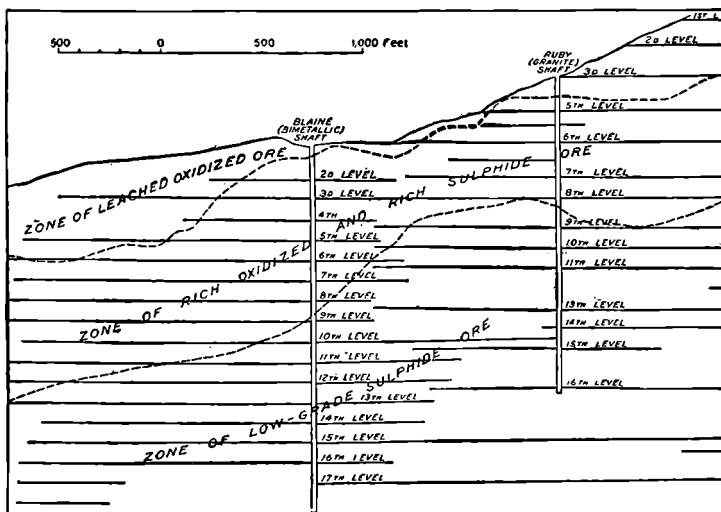 500 0 500 1,000 Feet
1ST L
2D LEVEL
RUBY
(GRANITE)
SHAFT
3D LEVEL
5TH LEVEL
6TH LEVEL
7TH LEVEL
8TH LEVEL
9TH LEVEL
10TH LEVEL
11TH LEVEL
13TH LEVEL
14TH LEVEL
15TH LEVEL
16TH LEVEL
BLAINE
(BIMETALLIC)
SHAFT
2D LEVEL
3D LEVEL
4TH
5TH LEVEL
6TH LEVEL
7TH LEVEL
8TH LEVEL
9TH LEVEL
10TH LEVEL
11TH LEVEL
12TH LEVEL
13TH LEVEL
14TH LEVEL
15TH LEVEL
16TH LEVEL
17TH LEVEL
ZONE OF LEACHED OXIDIZED ORE
ZONE OF RICH OXIDIZED AND RICH SULPHIDE ORE
ZONE OF LOW-GRADE SULPHIDE ORE